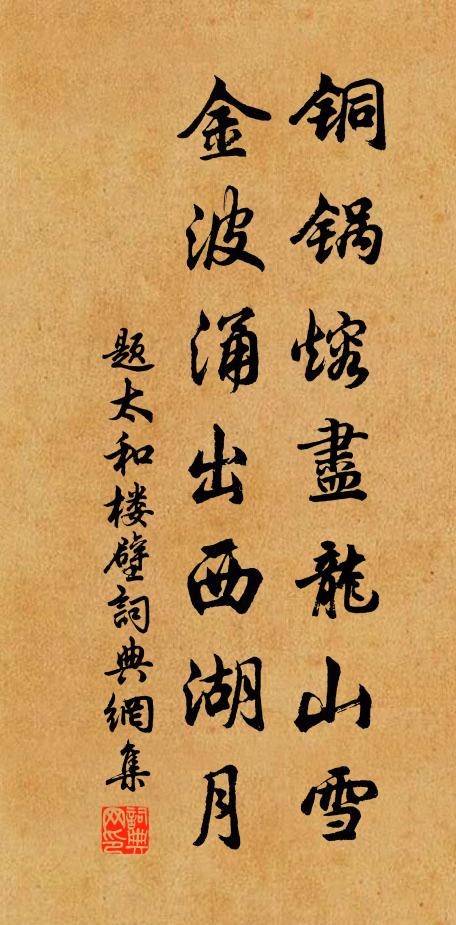 铜锅熔盡龍山雪
金波涌出西湖月
题太和楼壁詞典網集
詞典网印